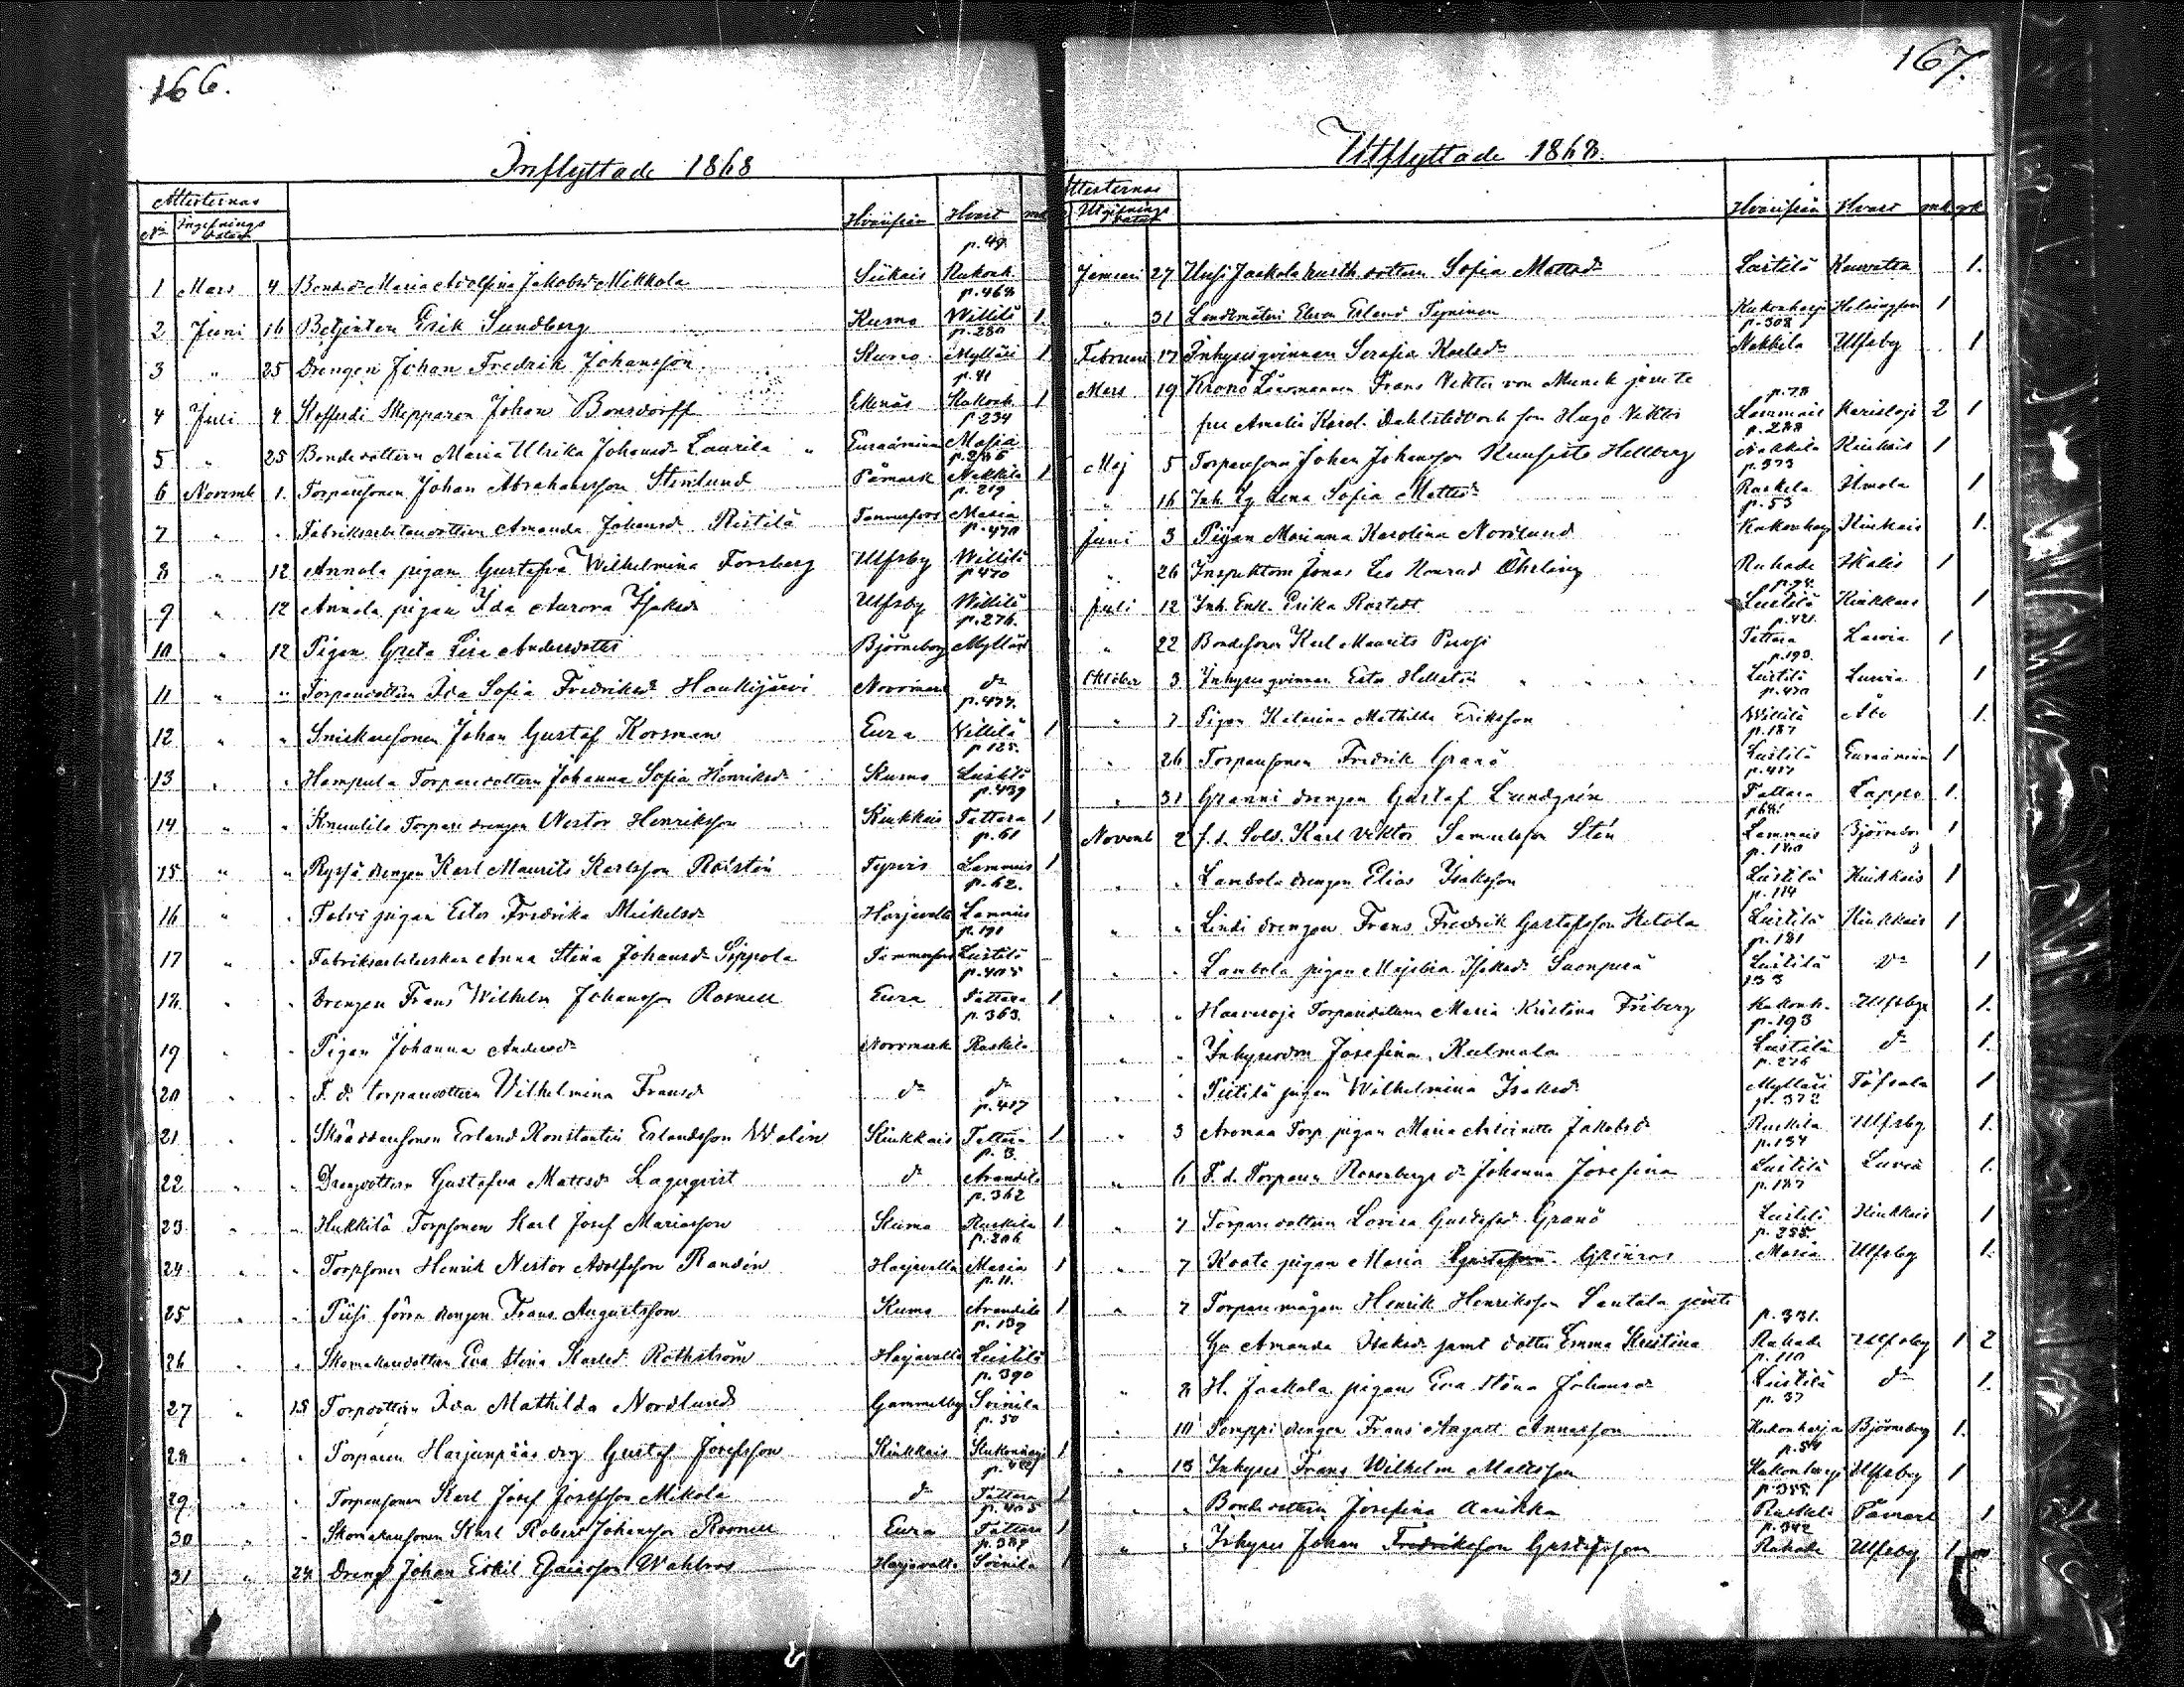 166.
Inflyttade 1868
Attesternas
No Ingifnings datum Hvarifrån Hvart mk
p. 49.
1 Mars 4 Bonded. Maria Adolfina Jakobsd. Mikkola Siikais Kukonh.
p. 468
2 Juni 16 Betjenten Erik Sundberg Kumo Willilä 1.
p. 280
3 " 25 Drengen Johan Fredrik Johansson Kumo Mylläri 1
p. 41
4 Juli 4 Kofferdi Skepparen Johan Bonsdorff Ekenäs Kukonh. 1
p. 234
5 " 25 Bondedottern Maria Ulrika Johansd. Laurila Euraåminne Masia
6 Novemb 1. Torparesonen Johan Abrahamsson Stenlund Påmark Nakkila 1
p. 219
7 " " Fabriksarbetaredottern Amanda Johansd. Ristilä Tammerfors Masia
p. 470
8 " 12 Annola pigan Gustafva Wilhelmina Forsberg Ulfsby Willilä
p. 470
9 " 12 Annola pigan Ida Aurora Isaksd. Ulfsby Willilä
p. 276.
10 " 12 Pigan Greta Lisa Andersdotter Björneborg Mylläri
11 " " Torparedottern Ida Sofia Fredriksd. Haukijärvi Norrmark do
p. 477.
12 " " Snickaresonen Johan Gustaf Korsman Eura Villilä 1
p. 125.
13 " " Hampula Torparedottern Johanna Sofia Henriksd. Kumo Leistilä
p. 439
14 " " Knuutila Torpare drengen Nestor Henriksson Kiukkais Tattara 1
p. 61
15 " " Ryssä drengen Karl Maurits Karlsson Tyrvis Lammais 1
p. 62.
16 " " Talvi pigan Ester Fredrika Mickelsd. Harjavalla Lammais
p. 191
17 " " Fabriksarbeterskan Anna Stina Johansd. Sippola Tammerfors Leistilä
p. 405
18. " " Drengen Frans Wilhelm Johansson Rosnell Eura Tattara 1
p. 363.
19 " " Pigan Johanna Andersd. Norrmark Ruskila
20 " " F. d. torparedottern Vilhelmina Fransd. do do
p. 417
21 " " Skräddaresonen Erland Konstantin Erlandsson Walin Kiukkais Tattara 1
p. 3.
22 " " Drengdottern Gustafva Mattsd. Lagerqvist do Arandila
p. 362
23 " " Hukkilä Torpsonen Karl Josef Mariasson Kumo Ruskila 1
p. 206
24 " " Torpsonen Henrik Nestor Adolfsson Randén Harjavalla Masia 1
p. 11.
25 " " Piisi förra drengen Frans Augustsson Kumo Arandila 1
p. 139
26 " " Skomakaredottern Eva Stina Karlsd. Rothström Harjavalla Leistilä
p. 390
27 " 15 Torpdottern Ida Mathilda Nordlund Gammelby Soinila
p. 50
28 " " Torparen Harjunpääs drg Gustaf Josefsson Kiukkais Kukonharja 1
29 " " Torparesonen Karl Josef Josefsson Mikola do Tattara 1
p. 405
30 " " Skomakaresonen Karl Robert Johansson Rosnell Eura Tattara 1
p. 387
31 " 24 Dreng Johan Eskil Wahlroos Harjavalla Soinila 1
167.
Utflyttade 1868.
Attesternas
Utgifnings datum Hvarifrån Hvart mk qk
Januari 27 Uusi Jaakola husb. dottern Sofia Mattsd. Leistilä 1.
" 31 Landtmäteri Eleven Erland Tyninen Kukonharja Helsingfors 1
p. 308
Februari 17 Inhysesqvinnan Serafia Karlsd. Nakkila Ulfsby 1
Mars 19 Krono Länsmannen Frans Viktor von Munck jemte
p. 78
fru Amalia Karol. Dahlstedt och son Hugo Viktor Lammais Karislojo 2 1
p. 288
Maj 5 Torparesonen Johan Johansson Kuusisto Hellberg Nakkila Kiukais 1
p. 373
" 16 Inh. Lena Sofia Mattsd. Ruskila Ilmola 1
p. 53
Juni 3 Pigan Mariana Karolina Nordlund Kukonharj Kiukais 1.
" 26 Inspektorn Jonas Leo Konrad Öhrling Ruhade Ikalis 1
p. 94.
Juli 12 Inh. Enk. Erika Rostedt Leistilä Kiukkais 1
p. 421.
" 22 Bondesonen Karl Maurits Tattara Lavia 1
p. 193.
Oktober 3 Inhyses qvinnan Esta Hellstén Leistilä Luvia 1
p. 470
" 7 Pigan Katarina Mathilda Eriksson Willilä Åbo 1.
p. 187
" 26 Torparesonen Fredrik Granö Leistilä Euraåminne 1
p. 417
" 31 Granni drengen Gustaf Lundgrén Tattara Lappo 1.
p. 68.
Novemb 2 f. d. Sold. Karl Viktor Samuelsson Stén Lammais Björneborg 1
p. 180
" " Lambola drengen Elias Isaksson Leistilä Kiukkais 1
p. 114
" " Lindi drengen Frans Fredrik Gustafsson Ketola Leistilä Kiukkais 1
p. 181
" " Lambola pigan Isaksd. Suonperä Leistilä do 1
133
" " Haaraoja Torparedottern Maria Kristina Friberg Kukonh. Ulfsby 1.
p. 193
" " Inhysesdm Josefina Kulmala Leistilä do 1.
p. 276
" " Piitilä pigan Wilhelmina Isaksd. Mylläri Töfsala 1
p. 372
" 3 Aromaa Torp. pigan Maria Antoinette Jakobsd. Ruskila Ulfsby 1.
p. 134
" 6 F. d. Torparen Rosenbergs dr Johanna Josefina Leistilä Luvia 1.
p. 187
" 7 Torparedottern Lovisa Gustafsd. Granö Leistilä Kiukkais 1
p. 255.
" 7 Koota pigan Maria Masia Ulfsby 1.
" 7 Torparemågen Henrik Henriksson Lautala jemte
p. 331.
Hu Amanda Isaksd. jemt dotter Emma Kristina Ruhade Ulfsby 1 2
p. 110
" 8 H. Jaakola pigan Eva Stina Johansd. Leistilä do 1.
p. 37
" 10 Pomppi drengen Frans August Annasson Kukonharja Björneborg 1.
p. 54
" 13 Inhyses Frans Wilhelm Mattsson Kukonharja Ulfsby 1
p. 355.
" " Bondedottern Josefina Aarikka Ruskila Påmark 1
p. 342
" " Inhyses Johan Fredriksson Gustafsson Ruhade Ulfsby 1